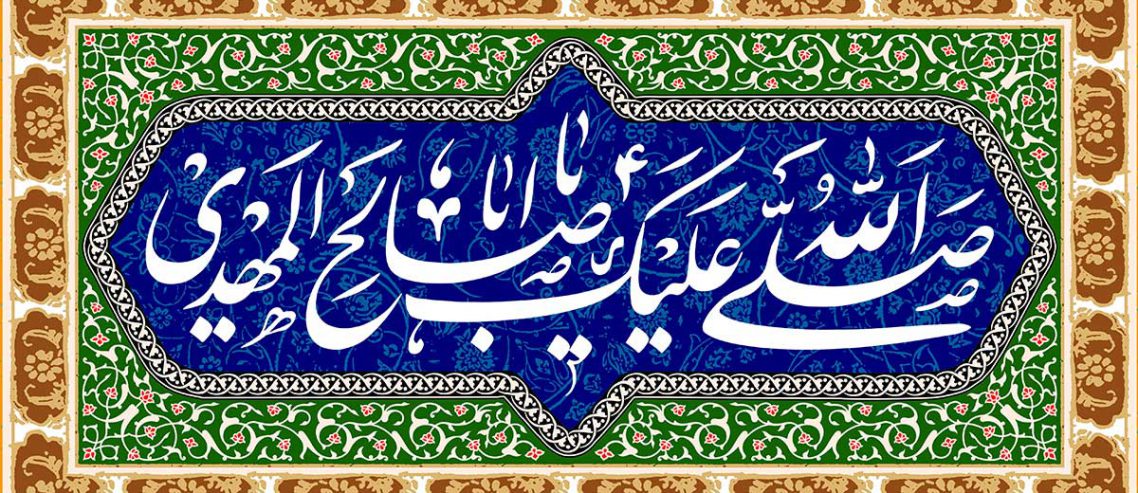 صلی الله علیک یا اباصالح المهدی